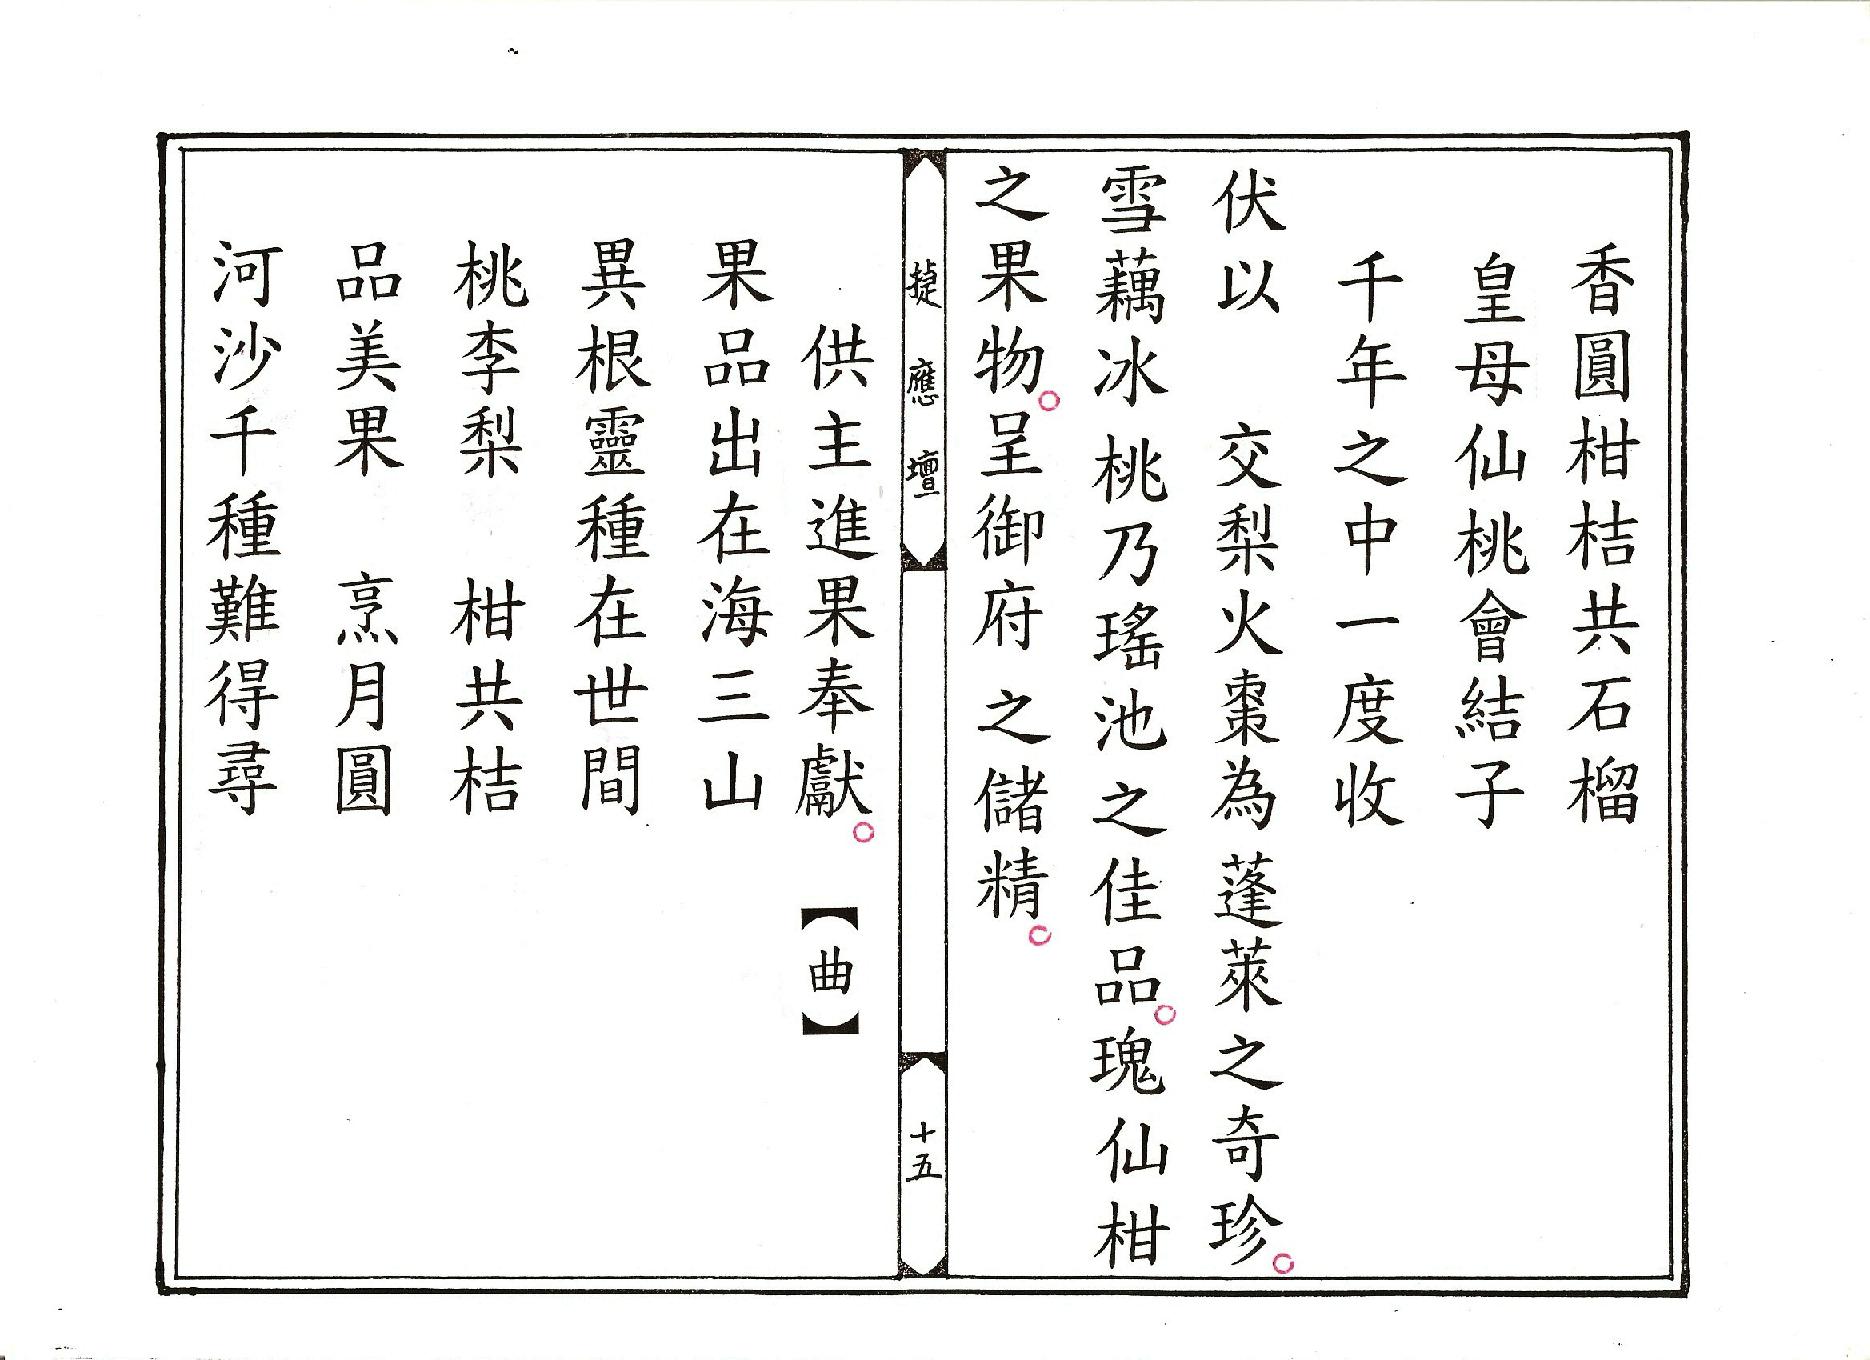 香圓柑桔共石榴
皇母仙桃會結子
千年之中一度收
伏以　交梨火棗為蓬萊之奇珍。
雪藕冰桃乃瑤池之佳品。瑰仙柑
之果物。呈御府之儲精。
應壇
十五
供主進果奉獻。【曲】
果品出在海三山
異根靈種在世間
桃李梨　柑共桔
品美果　烹月圓
河沙千種難得尋